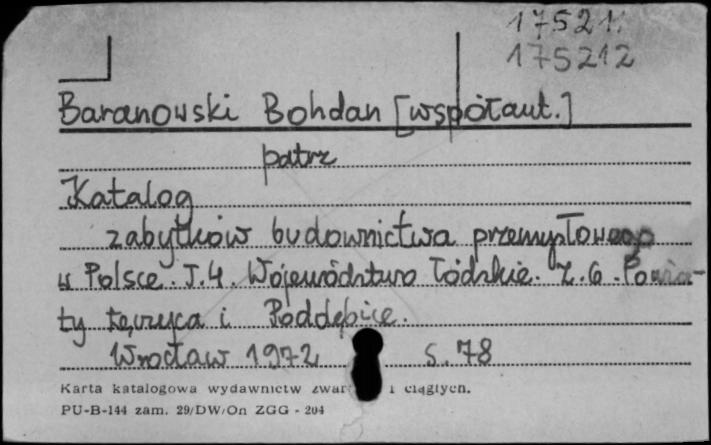 17521.
175212
Baranowski Bohdan [współaut.]
patrz
Katalog
zabytków budownictwa przemysłowego
w Polsce. T.4. Województwo łódzkie. Z.6. Powia-
ty Łęczyca i Poddębice.
Wrocław 1972 s. 78
Karta katalogowa wydawnictw zwar i ciągłych.
PU-B-144 zam. 29/DW/On ZGG - 204